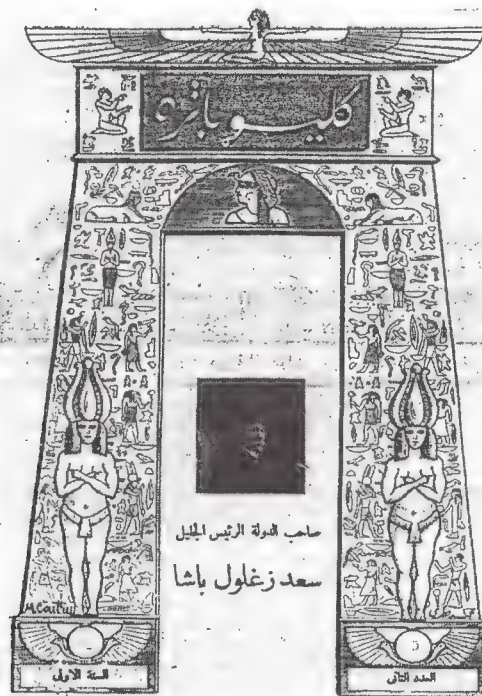 كليوباترة
صاحب الدولة الرئيس الجليل
سعد زغلول باشا
السنة الاولى
العدد الثانى